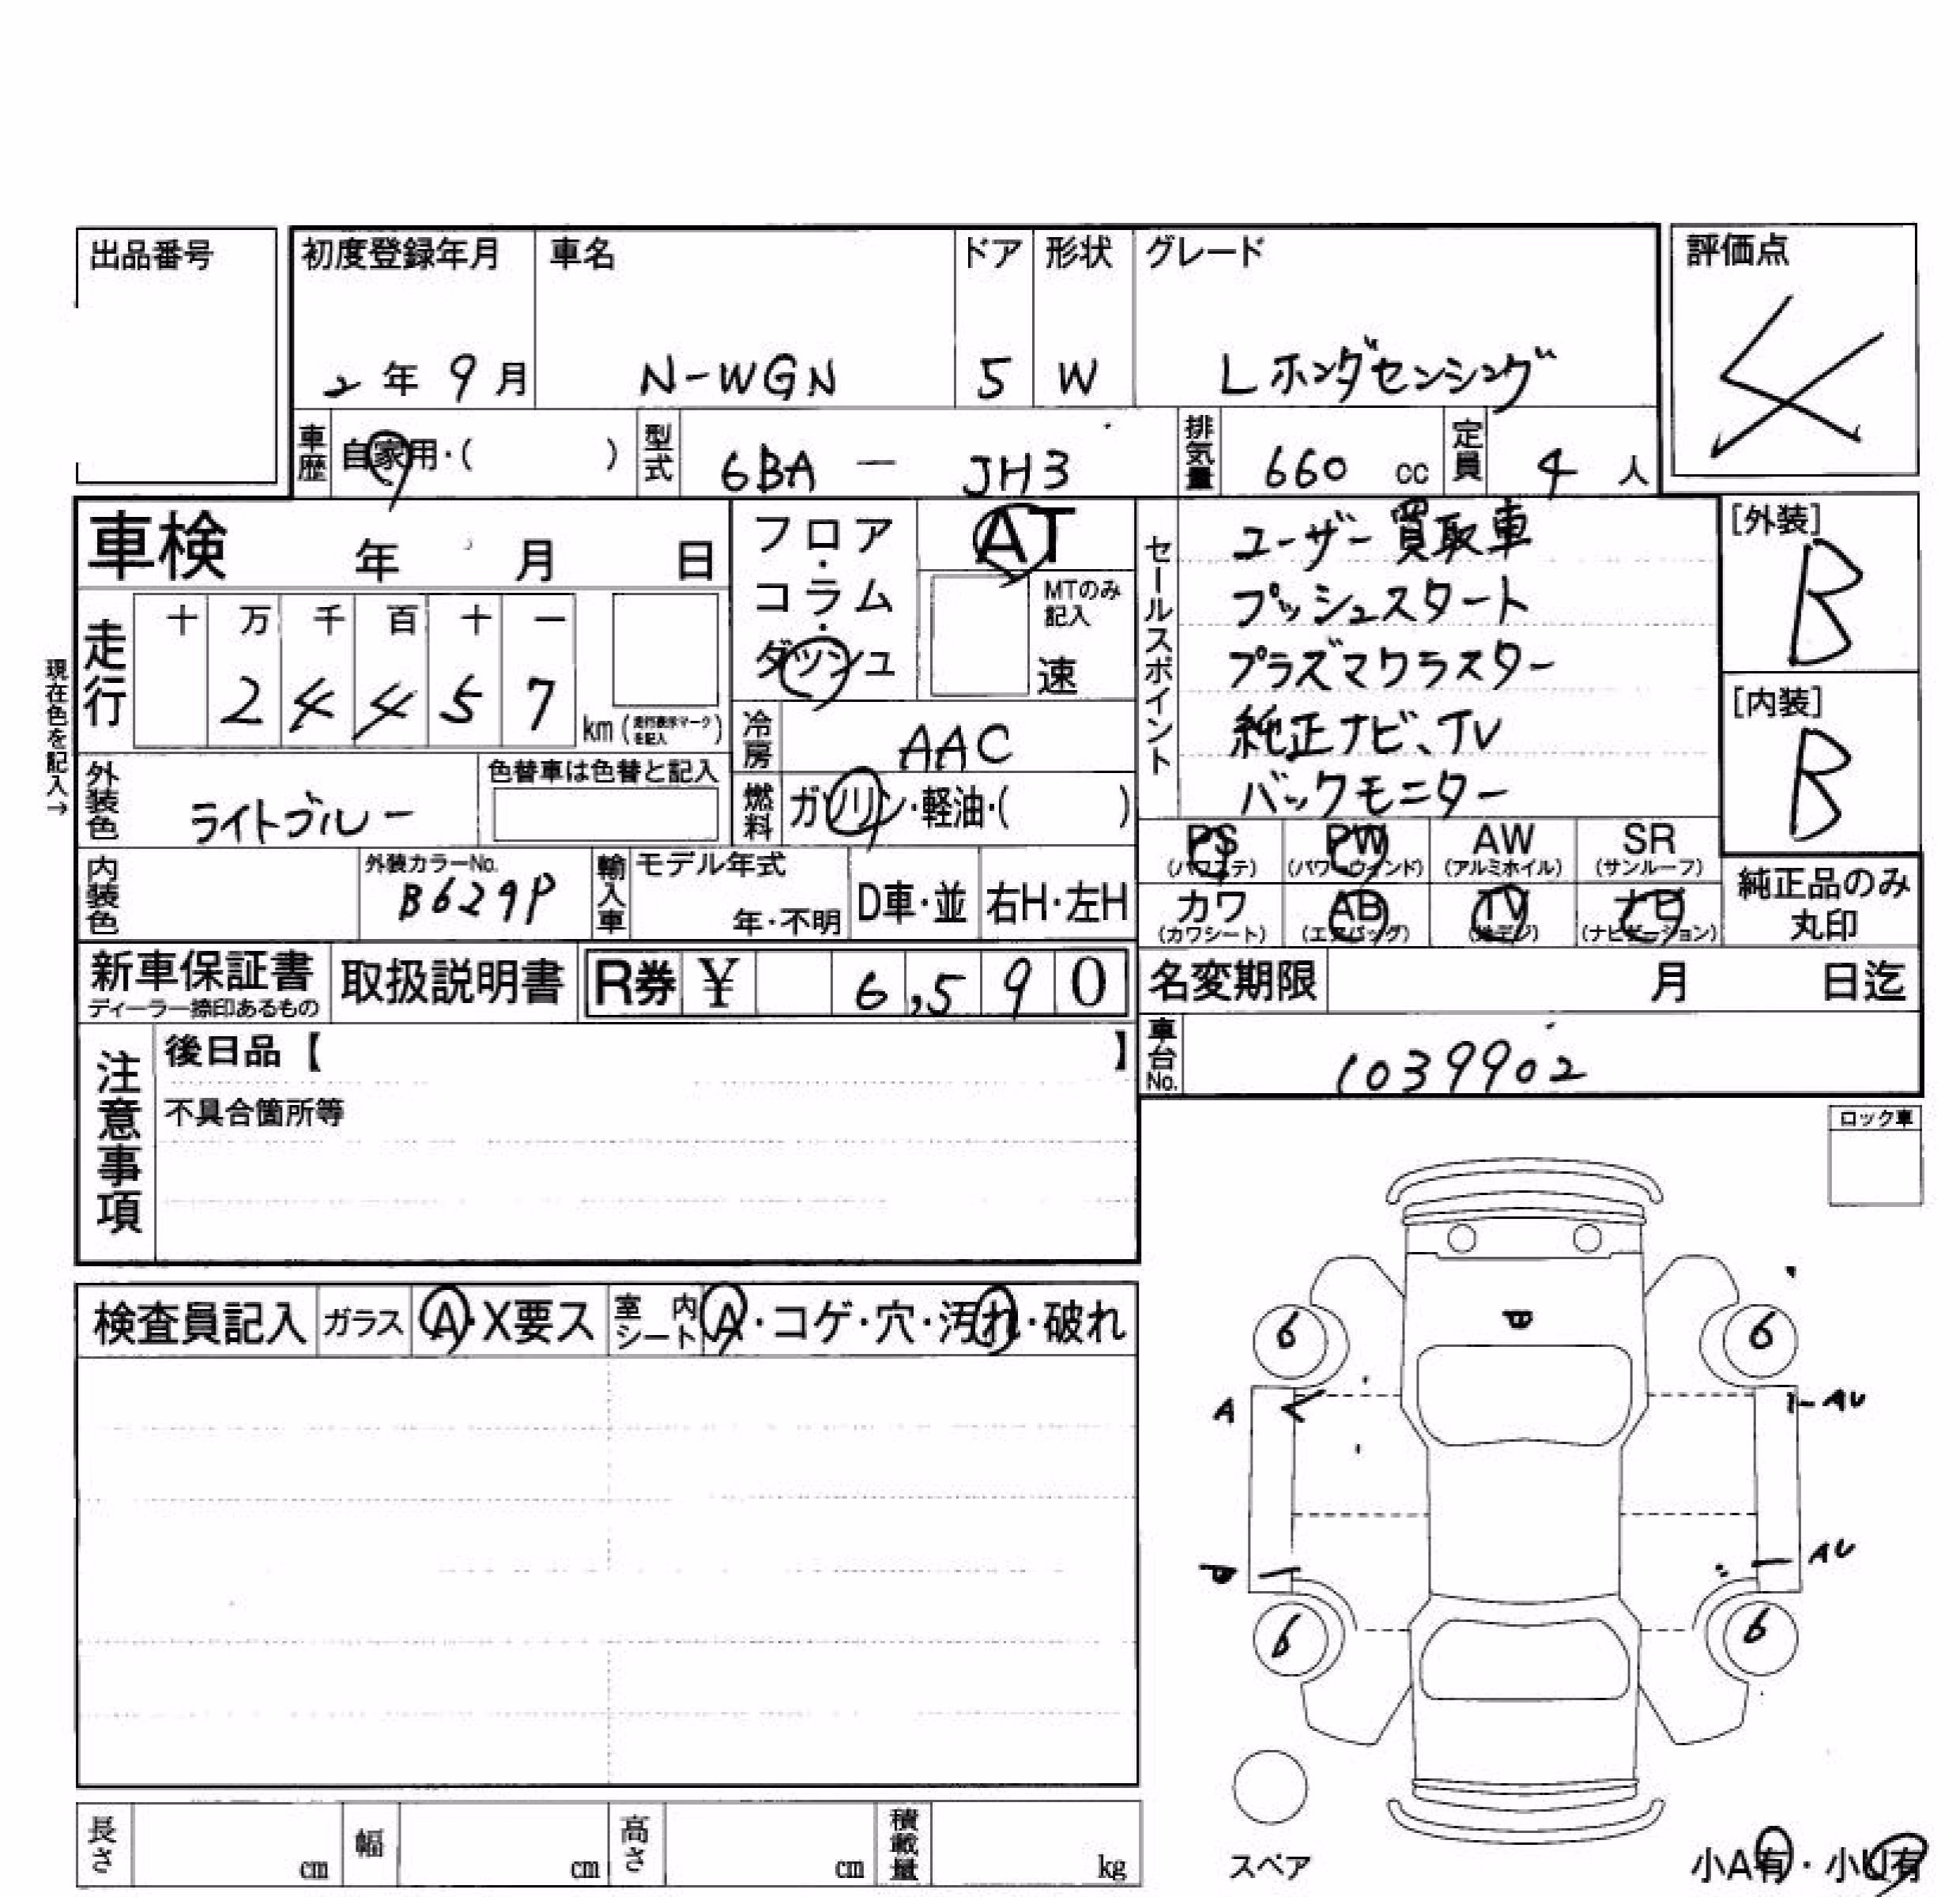 出品番号
初度登録年月 車名 ドア 形状 グレード 評価点
2年9月 N-WGN 5 W Lホンダセンシング 4
車歴 自家用・( ) 型式 6BA - JH3 排気量 660 cc 定員 4人
車検 年 月 日
フロア・コラム・ダッシュ
AT
MTのみ記入
速
セールスポイント
ユーザー買取車
プッシュスタート
プラズマクラスター
純正ナビ、TV
バックモニター
[外装]
B
[内装]
B
現在色を記入→
走行 十 万 千 百 十 一
2 4 4 5 7 km (走行表示マークを記入)
冷房 AAC
外装色 ライトブルー 色替車は色替と記入
燃料 ガソリン・軽油・( )
PS (パワステ) PW (パワーウィンド) AW (アルミホイル) SR (サンルーフ)
カワ (カワシート) AB (エアバッグ) TV (地デジ) ナビ (ナビゲーション)
純正品のみ丸印
内装色 外装カラーNo. B629P 輸入車 モデル年式 年・不明 D車・並 右H・左H
新車保証書 ディーラー捺印あるもの 取扱説明書 R券 ¥ 6,590
名変期限 月 日迄
車台No. 1039902
注意事項 後日品【 】
不具合箇所等
ロック車
検査員記入 ガラス A・X要ス 室内シート A・コゲ・穴・汚れ・破れ
6 6
A AU
AU
6 6
スペア
小A有・小U有
長さ cm 幅 cm 高さ cm 積載量 kg